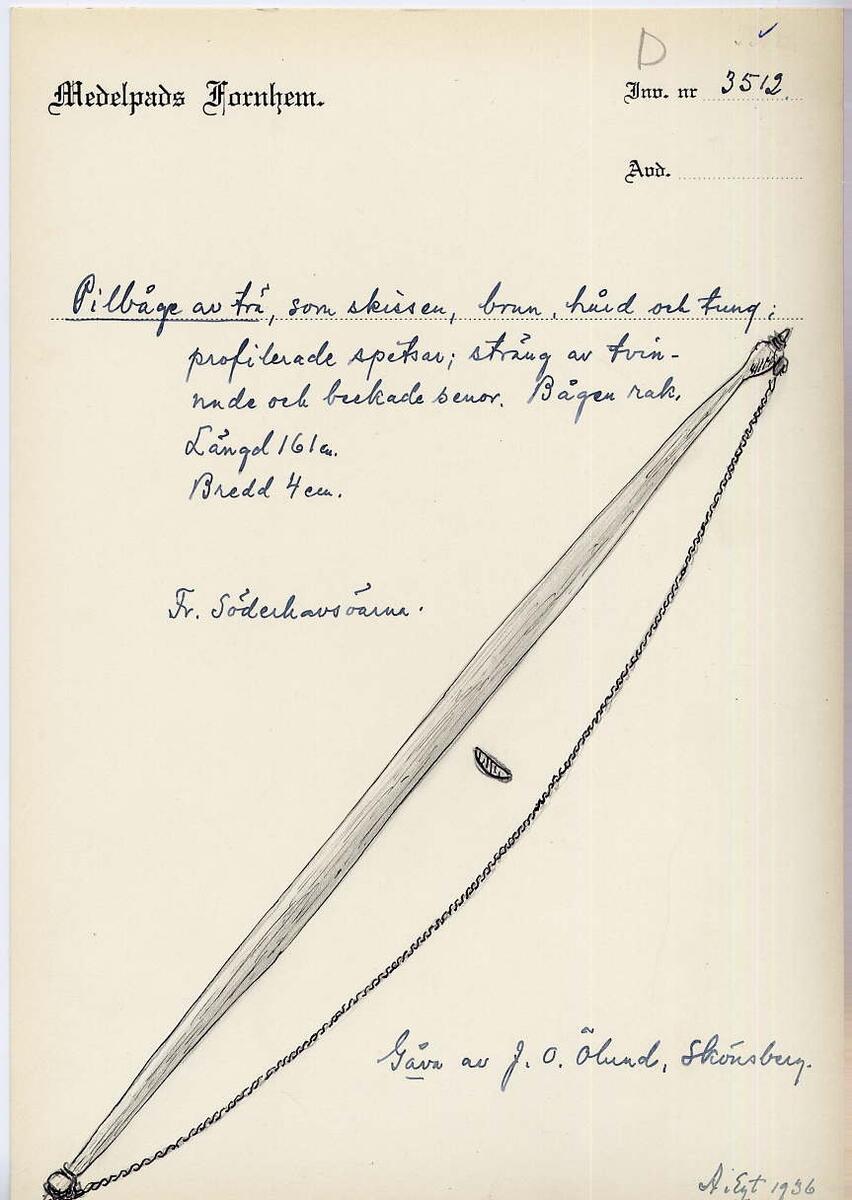 D
Medelpads Fornhem.
Inv. nr 3512.
Avd.
Pilbåge av trä, som skissen, brun, hård och tung;
profilerade spetsar; sträng av tvin-
nade och beckade senor. Bågen rak.
Längd 161 cm.
Bredd 4 cm.
Fr. Söderhavsöarna.
Gåva av J. O. Ölund, Skönsberg.
1936